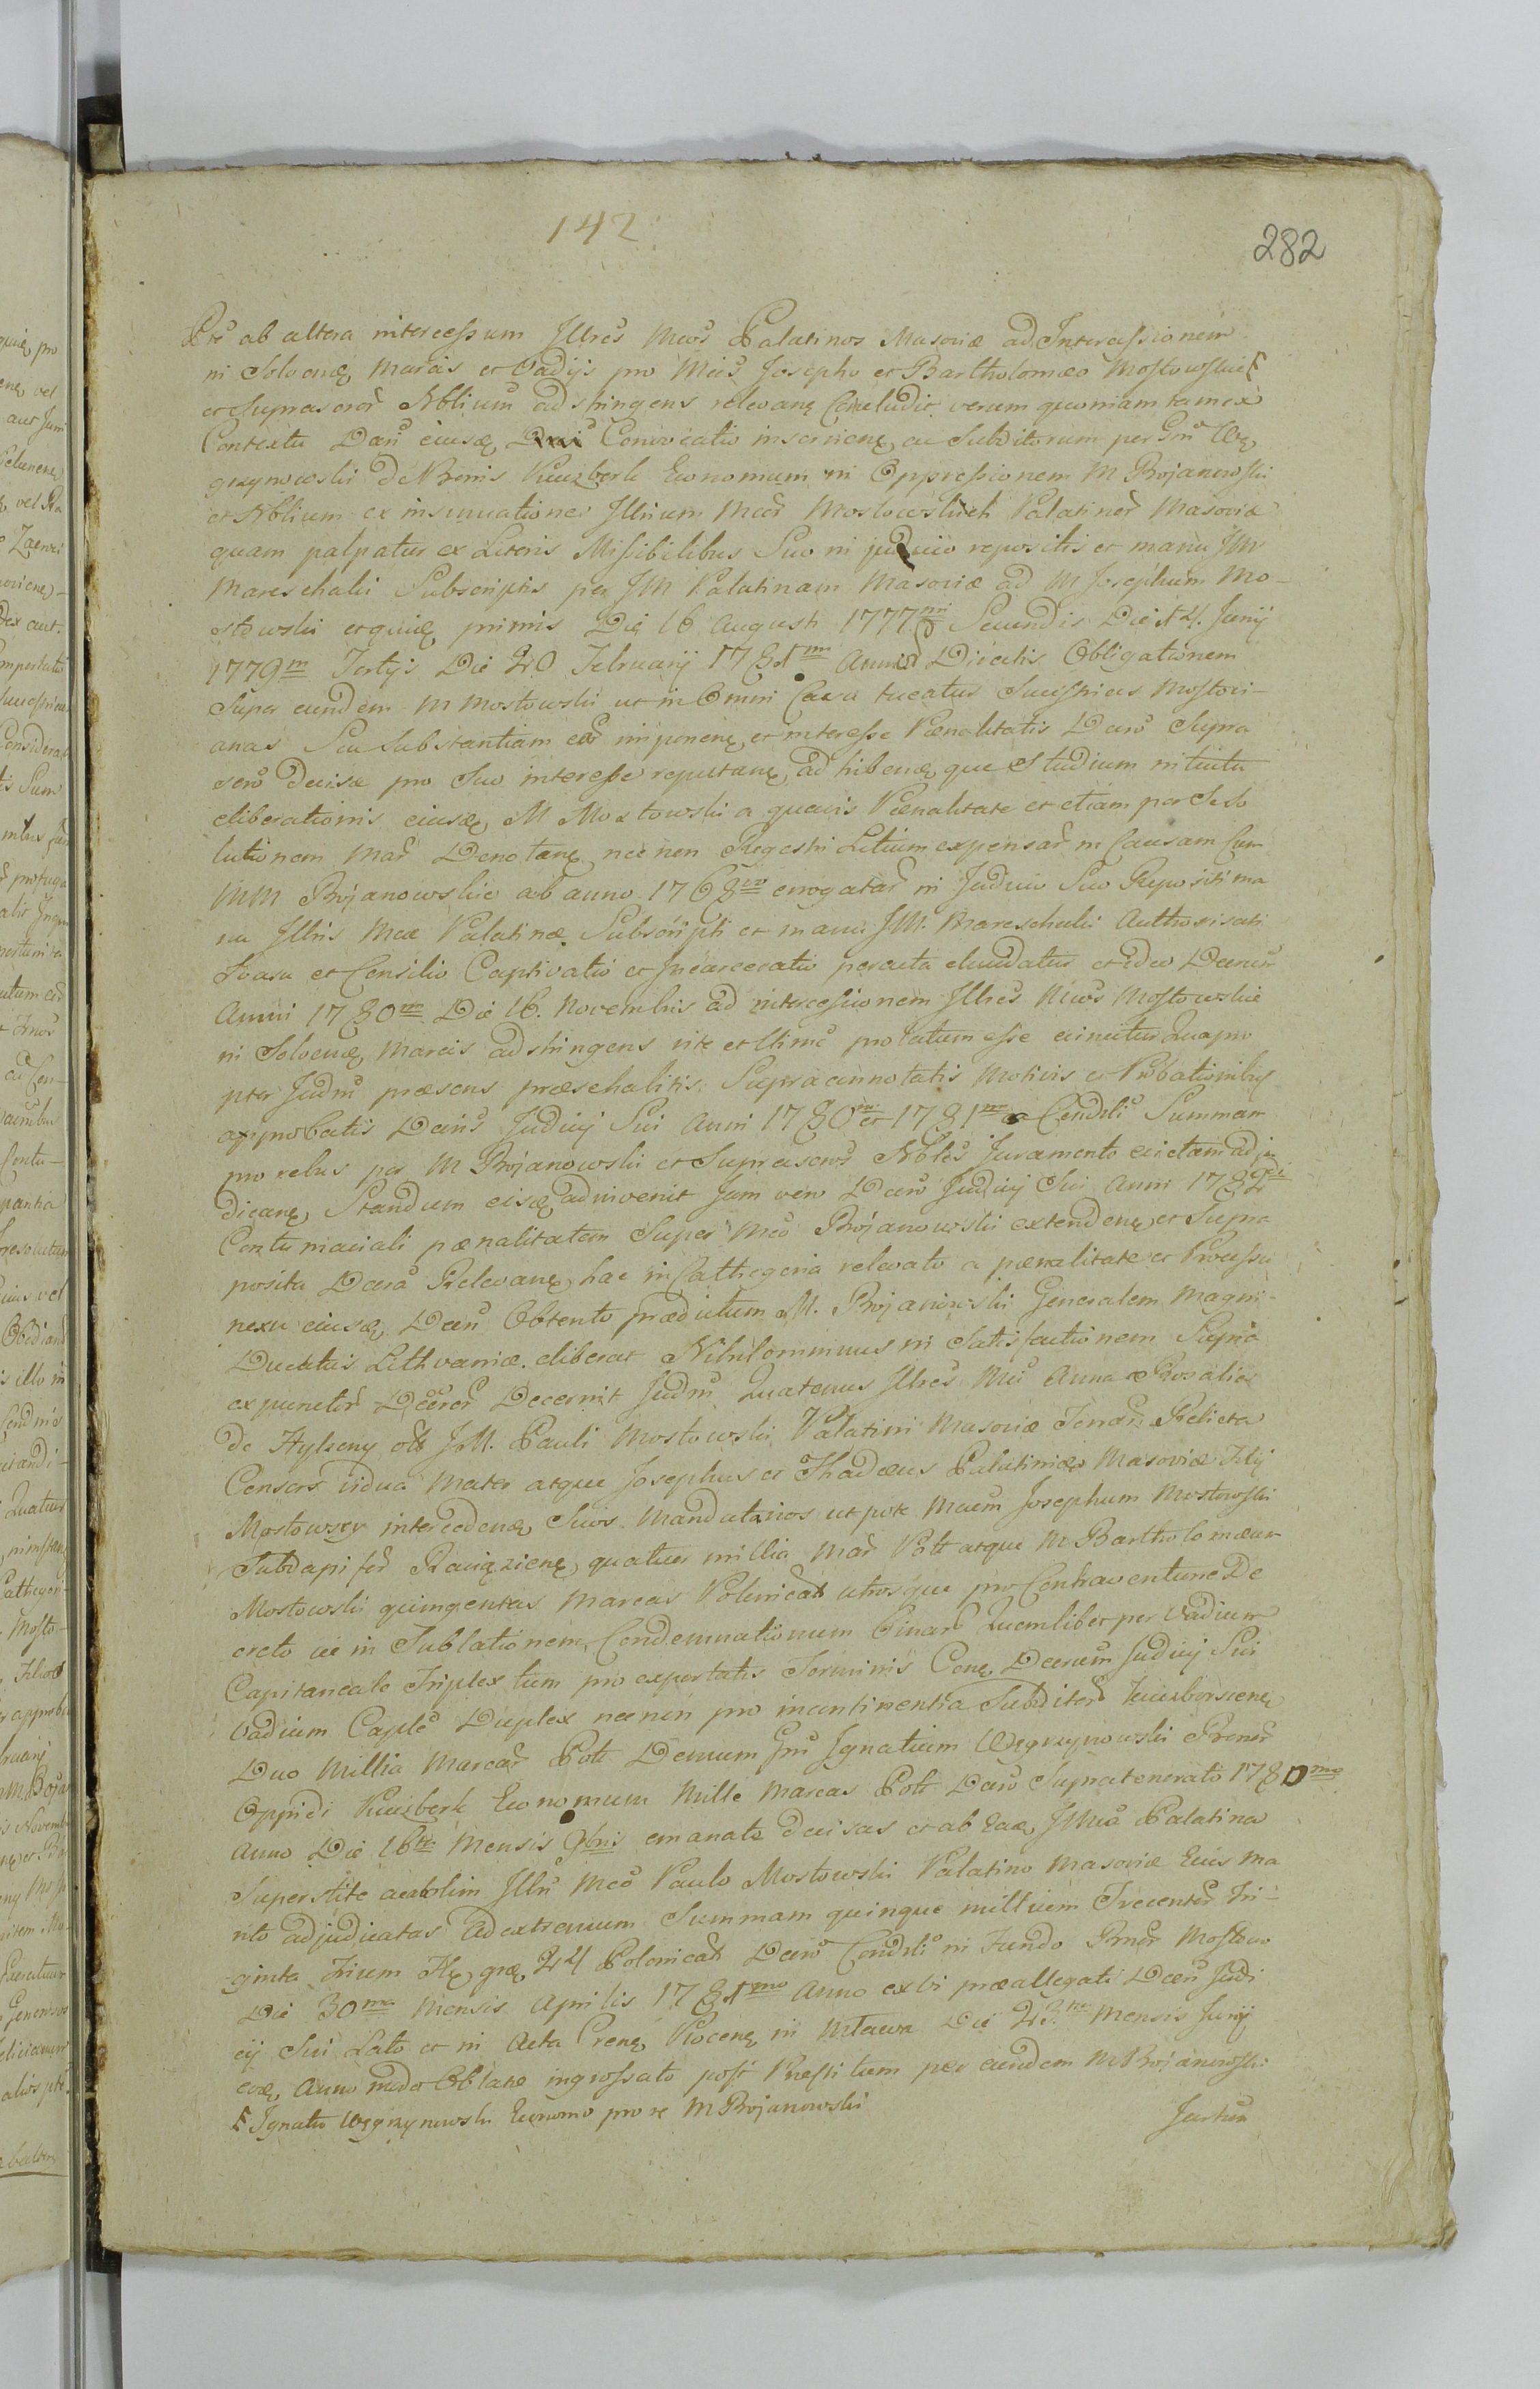 142
282
Pte ab altera intercessum Illres Mcos Palatinos Masoviæ ad Intercessionem
in Solvendis Marcis et Vadijs pro Mcis Josepho et Bartholomæo Mostowskie
et suprascror Nblium adstringens relevand Concludit verum quoniam tam ex
Contextu Dani eiusd Convicatio inserviend ac Subditorum per Gm Wę
grzynowski de Bonis Kuczberk Economum in Oppressionem M Bojanowski
et Nblium ex insinuatione Illrium Mcor Mostowskich Palatinor Masoviæ
quam palpatur ex Literis Missibilibus Suo in judicio repositis et manu JM
Mareschalci Subscriptis per JM Palatinam Masoviæ ad M Josephum Mo-
stowski primis Die 16 Augusti 1777mi Secundis Die 24. Junij
1779m Tertijs Die 20 Februarij 1781mi Annis Dicatis Obligationem
Super eundem M Mostowski ut in Omni Casu tueatur Mostovi-
anas Seu Substantiam eor imponend et interesse Pænalitatis Decro Supra
scro Decisæ pro Suo interesse reputand ad hibend que Studium intuitu
eliberationis eiusd M Mostowski a quavis Pænalitate et etiam per Seso
lutionem Mar Denotand nec non Regestri Litium expensar in Causam Cum
MM Bojanowskie ab anno 1768vo errogatar in Judicio Suo Repositi ma
nu Illris Mcæ Palatinæ Subscripti et manu JM. Mareschalci Authorisati
Svasu et Consilio Captivatio et Incarceratio peracta eluudatur et ideo Decrum
Anni 1780mi Die 16. Novembris ad intercessionem Illres Mcos Mostowskie
in Solvend Marcis adstringens rite et llime prolatum esse evincitur Quapro
pter Judm præsens præsehabitis Supraannotatis Motivis et Probationibus
approbatis Decris Judicij Sui Anni 1780mi et 1781mi Condli Summam
pro rebus per M Bojanowski et Suprascros Nbles Juramento evictam adju
dicand Standum eisd adinvenit Jam vero Decro Judicij Sui Anni 1782di
Contumaciali pænalitatem Super Mco Bojanowski extendend et Supra
posita Decra Relevand hac in Cathegoria relevato a pænalitate et Processu
nexu eiusd Decri Obtento prædictum M. Bojanowski Generalem Magni-
Ducatus Lithvaniæ eliberat Nihilominus in Satisfactionem Supra
expunctor Decror Decernit Judm Quatenus Illres Mci Anna Rosalia
de Hylseny olt JM. Pauli Mostowski Palatini Masoviæ Relicta
Consors vidua Mater atque Josephus et Thadæus Palatinidæ Masoviæ Filij
Mostowscy intercedend Suos Mandatarios utpote Mcum Josephum Mostowski
Subdapifer Raciąziend quatuor millia Mar Polt atque M Bartholomæum
Mostowski quingentas Marcas Polonicales utrosque pro Contraventione De
creto ac in Sublationem Condemnationum Binar Quemlibet per vadium
Capitaneale Triplex tum pro exportatis Terminis Cond Decrum Judicij Sui
Vadium Caple Duplex nec non pro incontinentia Subditor Kuczborsciend
Duo Millia Marcar Polt Demum Gm Ignatium Węgrzynowski Bonor
Oppidi Kuczberk Economum Mille Marcas Polt Decro Supratenorato 1780mo
Anno Die 16ta Mensis 9bris emanato decisas et ab Ead JMca Palatina
Superstite ac olim Illri Mco Paulo Mostowski Palatino Masoviæ Eius Ma
rito adjudicatas ad extremum Summam quinque millium Trecentor Tri-
ginta Trium Fl gr 24 Polonicalt Decro Condli in Fundo Bnor Mostowo
Die 30ma Mensis Aprilis 1781mo Anno ex vi præallegati Decri Judi
cij Sui Lato et in Acta Crend Plocend in Mlawa Die 23. Mensis Junij
eod Anno modo Oblatæ ingrossato post Præstitum per eundem M Bojanowski
Ignatio Węgrzynowski Economo pro re M Bojanowski